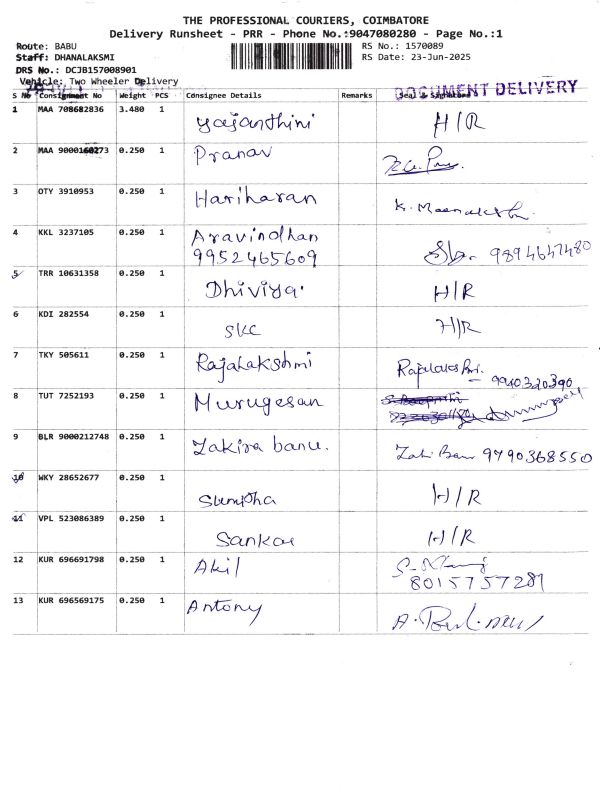 THE PROFESSIONAL COURIERS, COIMBATORE
Delivery Runsheet - PRR - Phone No.:9047080280 - Page No.:1
Route: BABU
RS No.: 1570089
Staff: DHANALAKSMI
RS Date: 23-Jun-2025
DRS No.: DCJB157008901
Vehicle: Two Wheeler Delivery
DOCUMENT DELIVERY
S No Consignment No Weight PCS Consignee Details Remarks Seal & Signature
1 MAA 708682836 3.480 1 Yajanthini H/R
2 MAA 9000160273 0.250 1 Pranav
3 OTY 3910953 0.250 1 Hariharan K. Meenakshi
4 KKL 3237105 0.250 1 Aravindhan
9952465609 9894647480
5 TRR 10631358 0.250 1 Dhiviya. H/R
6 KDI 282554 0.250 1 SKC H/R
7 TKY 505611 0.250 1 Rajalakshmi Rajalakshmi. 9940320390
8 TUT 7252193 0.250 1 Murugesan
9 BLR 9000212748 0.250 1 Zakira banu. 9790368550
10 WKY 28652677 0.250 1 H/R
11 VPL 523086389 0.250 1 Sankar H/R
12 KUR 696691798 0.250 1 Akil
8015757281
13 KUR 696569175 0.250 1 Antony